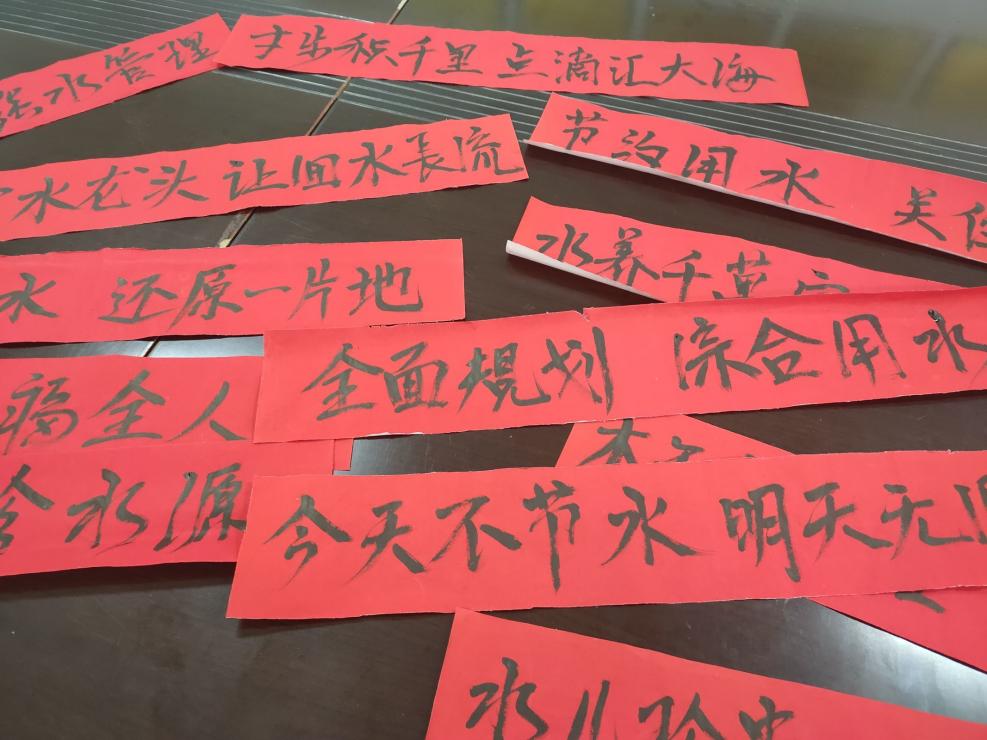 水管理
寸步积千里 点滴汇大海
节约用水 关
水龙头 让回水长流
水养千草
水 还原一片地
全面规划 综合用水
福全人
水源
今天不节水 明天无
水儿珍